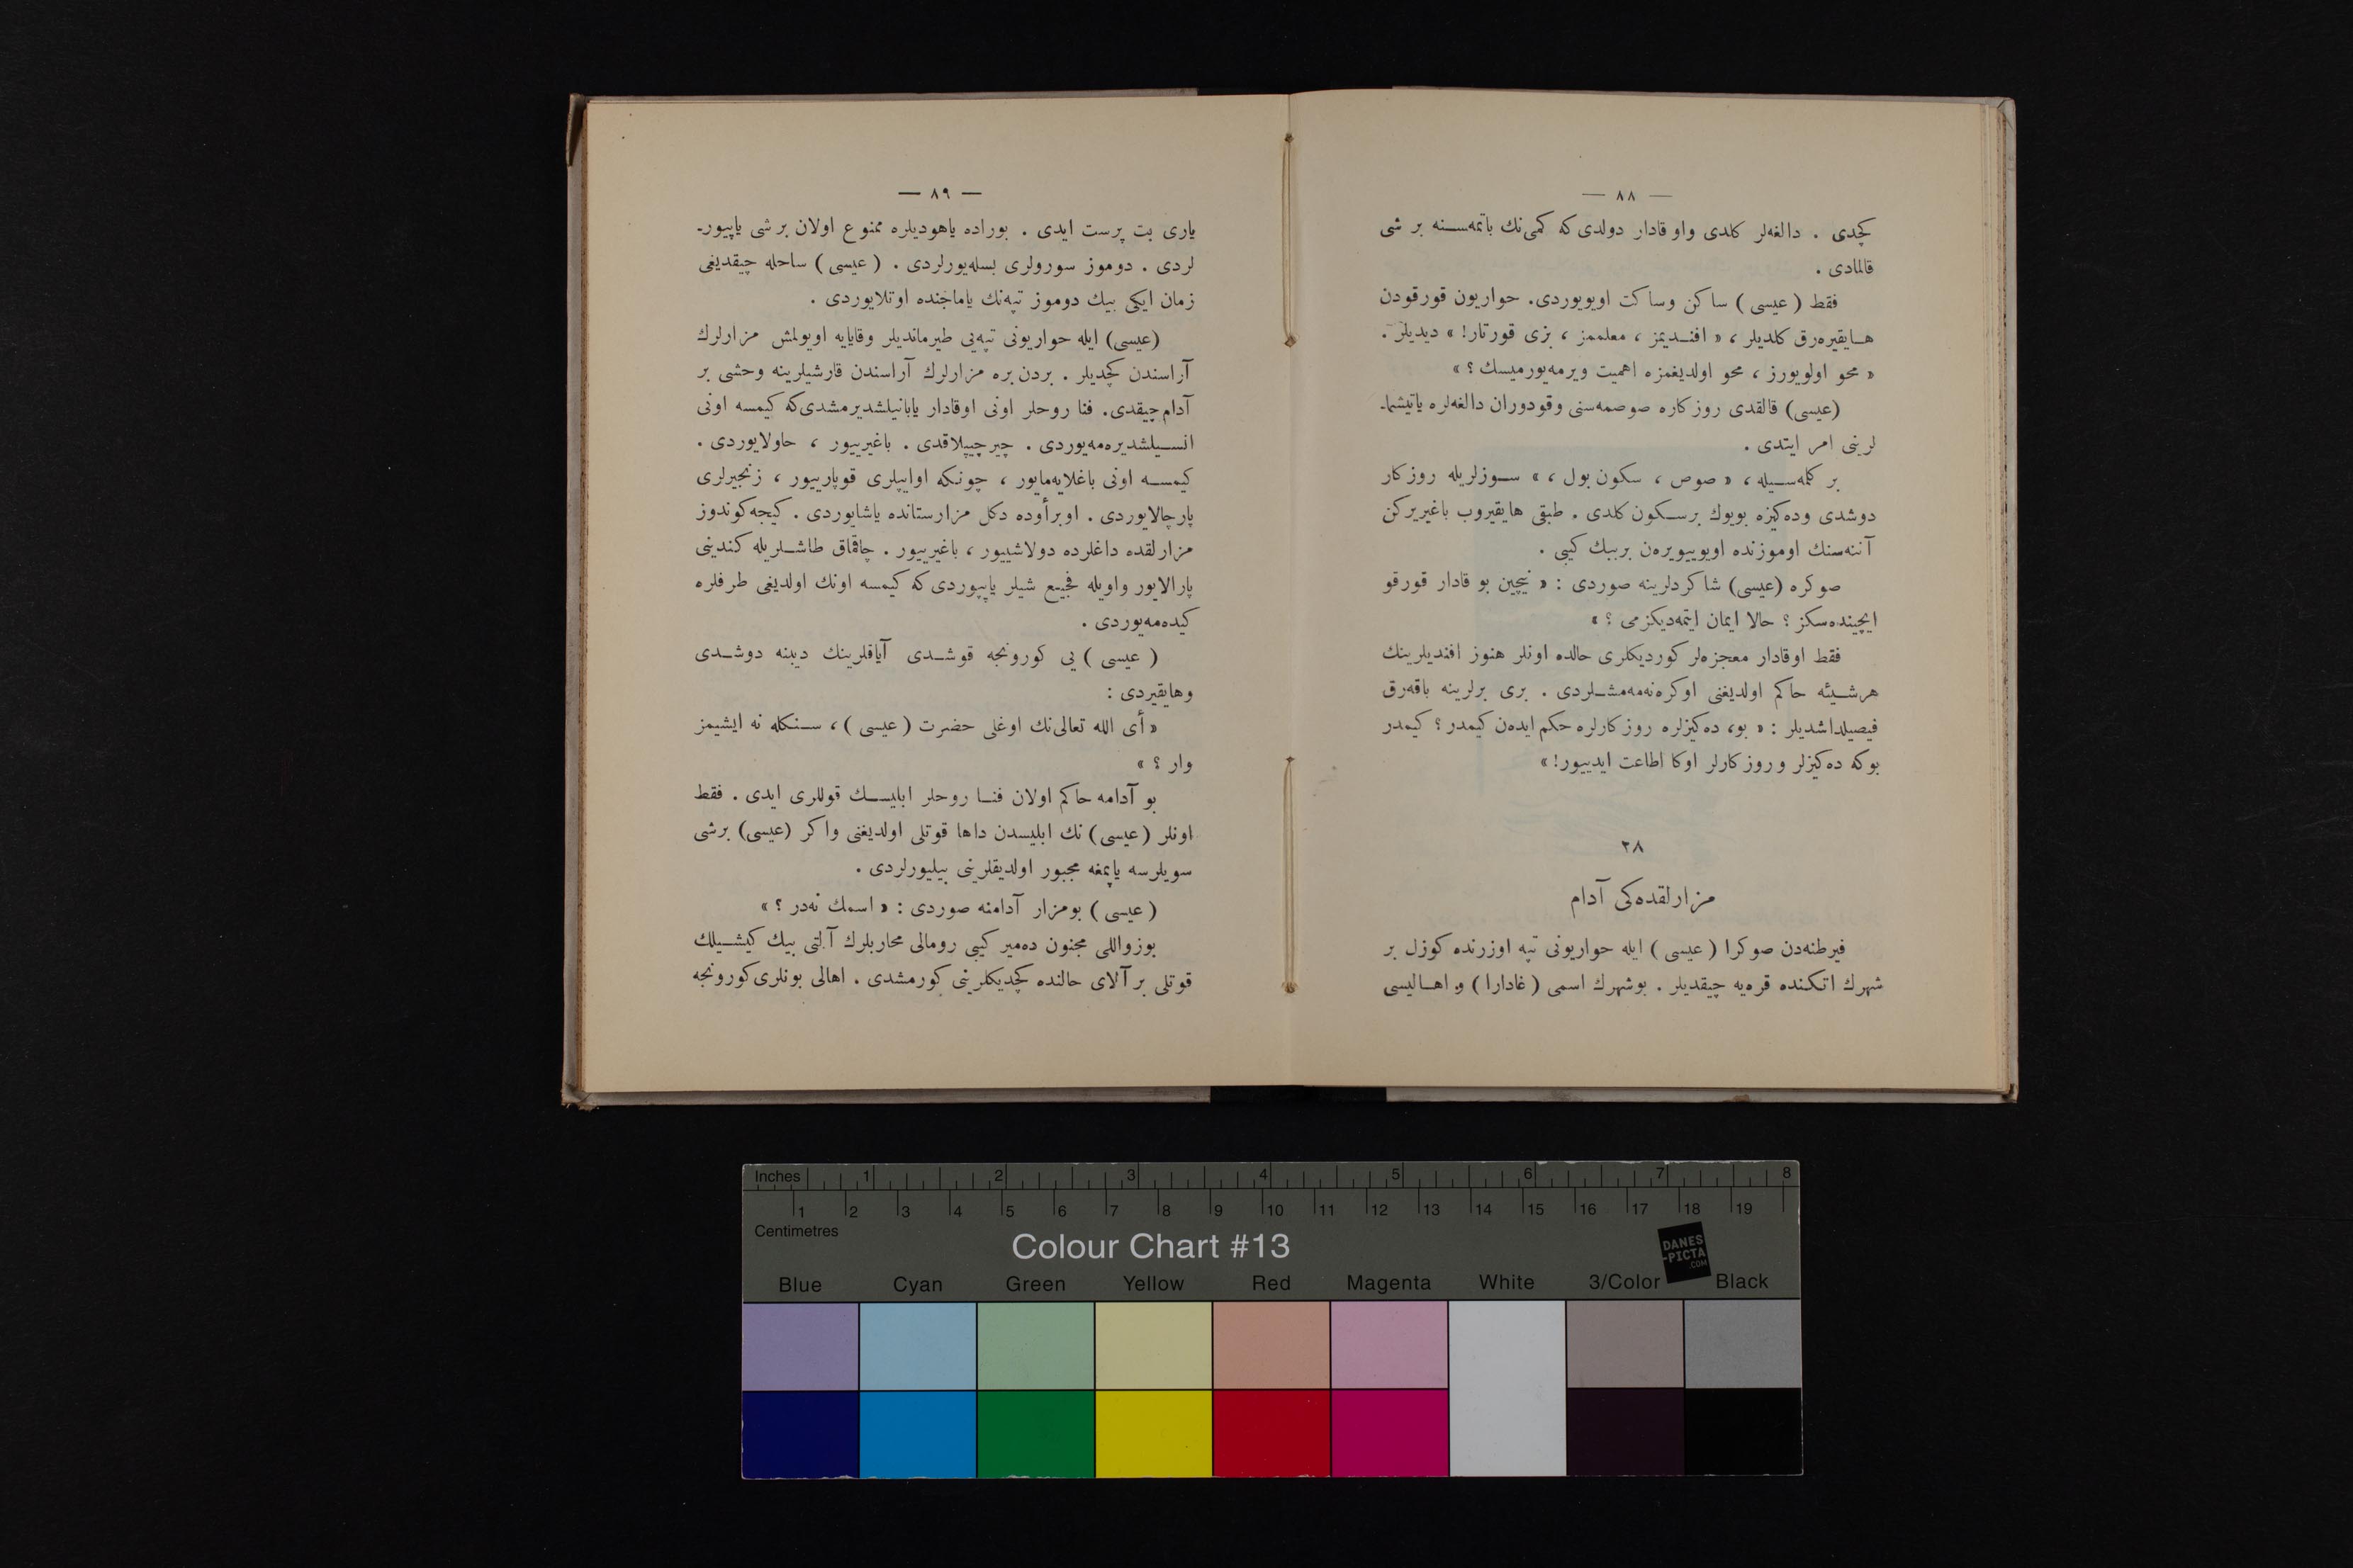 — ٨٨ —
كچدی . دالغه‌لر كلدی واو قادار دولدی‌كه كمی‌نك باتمه‌سنه بر شی
قالمادی .
فقط ( عیسی ) ساكن وساكت اویویوردی. حواریون قورقودن
هایقیره‌رق كلدیلر ، « افندیمز ، معلممز ، بزی قورتار! » دیدیلر .
« محو اولویورز ، محو اولدیغمزه اهمیت ویرمه‌یورمیسك ؟ »
(عیسی) قالقدی روزكاره صوصمه‌سنی وقودوران دالغه‌لره یاتیشما‌ـ
لرینی امر ایتدی .
بر كلمه‌سیله ، « صوص ، سكون بول ، » سوزلریله روزكار
دوشدی وده‌كیزه بویوك برسكون كلدی . طبقی هایقیروب باغیریركن
آننه‌سنك اوموزنده اویوییویره‌ن برببك كیبی .
صوكره (عیسی) شاكردلرینه صوردی : « نیچین بو قادار قورقو
ایچینده‌سكز ؟ حالا ایمان ایتمه‌دیكزمی ؟ »
فقط اوقادار معجزه‌لر كوردیكلری حالده اونلر هنوز افندیلرینك
هرشیئه حاكم اولدیغنی اوكره‌نه‌مه‌مشلردی . بری برلرینه باقه‌رق
فیصیلداشدیلر : « بو، ده‌كیزلره روزكارلره حكم ایده‌ن كیمدر ؟ كیمدر
بوكه ده‌كیزلر وروزكارلر اوكا اطاعت ایدییور! »
٢٨
مزارلقده‌كی آدام
فیرطنه‌دن صوكرا ( عیسی ) ایله حواریونی تپه اوزرنده كوزل بر
شهرك اتكنده قره‌یه چیقدیلر . بوشهرك اسمی ( غادارا ) و اهالیسی
— ٨٩ —
یاری بت پرست ایدی . بوراده یاهودیلره ممنوع اولان برشی یاپیور‌ـ
لردی . دوموز سورولری بسله‌یورلردی . ( عیسی ) ساحله چیقدیغی
زمان ایكی بیك دوموز تپه‌نك یاماجنده اوتلایوردی .
(عیسی) ایله حواریونی تپه‌یی طیرماندیلر وقایایه اویولمش مزارلرك
آراسندن كچدیلر . بردن بره مزارلرك آراسندن قارشیلرینه وحشی بر
آدام چیقدی. فنا روحلر اونی اوقادار یابانیلشدیرمشدی‌كه كیمسه اونی
انسیلشدیره‌مه‌یوردی . چیرچیپلاقدی . باغیرییور ، حاولایوردی .
كیمسه اونی باغلایه‌مایور ، چونكه اوایپلری قوپارییور ، زنجیرلری
پارچالایوردی . اوبرأوده دكل مزارستانده یاشایوردی . كیجه‌كوندوز
مزارلقده داغلرده دولاشییور ، باغیرییور . چاقماق طاشلریله كندینی
پارالایور واویله فجیع شیلر یاپییوردی‌كه كیمسه اونك اولدیغی طرفلره
كیده‌مه‌یوردی .
( عیسی ) یی كورونجه قوشدی آیاقلرینك دیبنه دوشدی
وهایقیردی :
« أی الله تعالی‌نك اوغلی حضرت ( عیسی ) ، سنكله نه ایشیمز
وار ؟ »
بو آدامه حاكم اولان فنا روحلر ابلیسك قوللری ایدی . فقط
اونلر (عیسی) نك ابلیسدن داها قوتلی اولدیغنی واكر (عیسی) برشی
سویلرسه یاپمغه مجبور اولدیقلرینی بیلیورلردی .
( عیسی ) بومزار آدامنه صوردی : « اسمك نه‌در ؟ »
بوزواللی مجنون ده‌میر كیبی رومالی محاربلرك آلتی بیك كیشیلك
قوتلی بر آلای حالنده كچدیكلرینی كورمشدی . اهالی بونلری كورونجه
Inches 1 2 3 4 5 6 7 8
1 2 3 4 5 6 7 8 9 10 11 12 13 14 15 16 17 18 19
Centimetres
Colour Chart #13
DANES
-PICTA
.COM
Blue Cyan Green Yellow Red Magenta White 3/Color Black